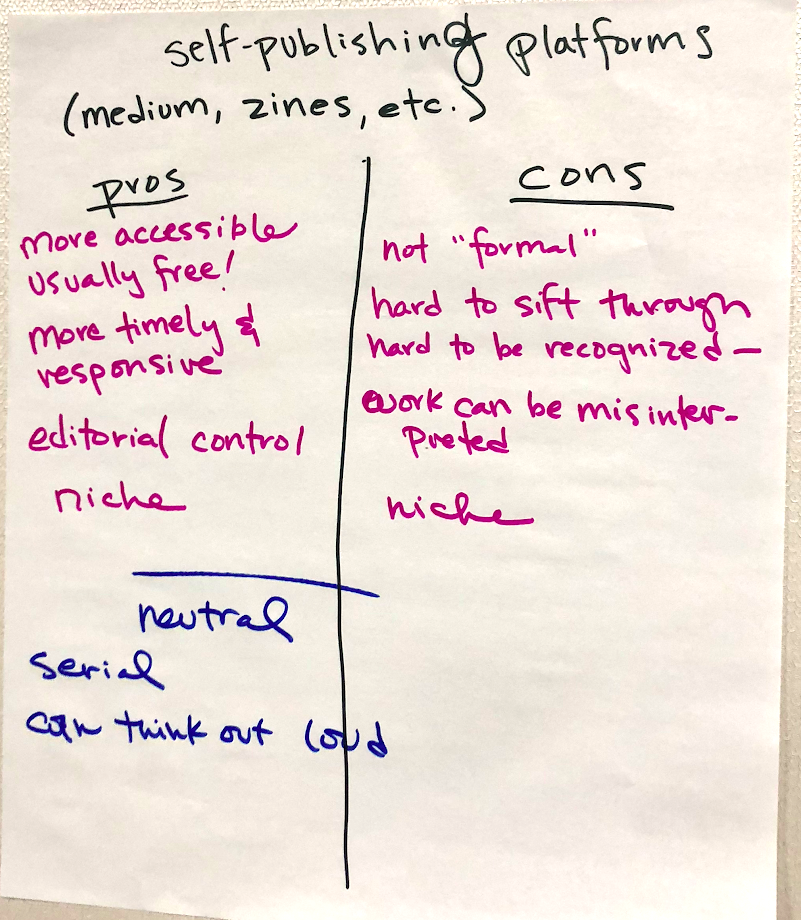 self-publishing platforms
(medium, zines, etc.)
pros
more accessible
usually free!
more timely &
responsive
editorial control
niche
cons
not "formal"
hard to sift through
hard to be recognized —
work can be misinter-
preted
niche
neutral
serial
can think out loud